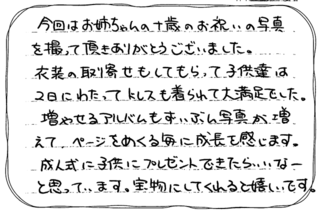 今回はお姉ちゃんの十歳のお祝いの写真
を撮って頂きありがとうございました。
衣装の取り寄せもしてもらって子供達は
2日にわたってドレスも着られて大満足でした。
増やせるアルバムもずいぶん写真が増
えて、ページをめくる毎に成長を感じます。
成人式に子供にプレゼントできたらいいなー
と思っています。実物にしてくれると嬉しいです。